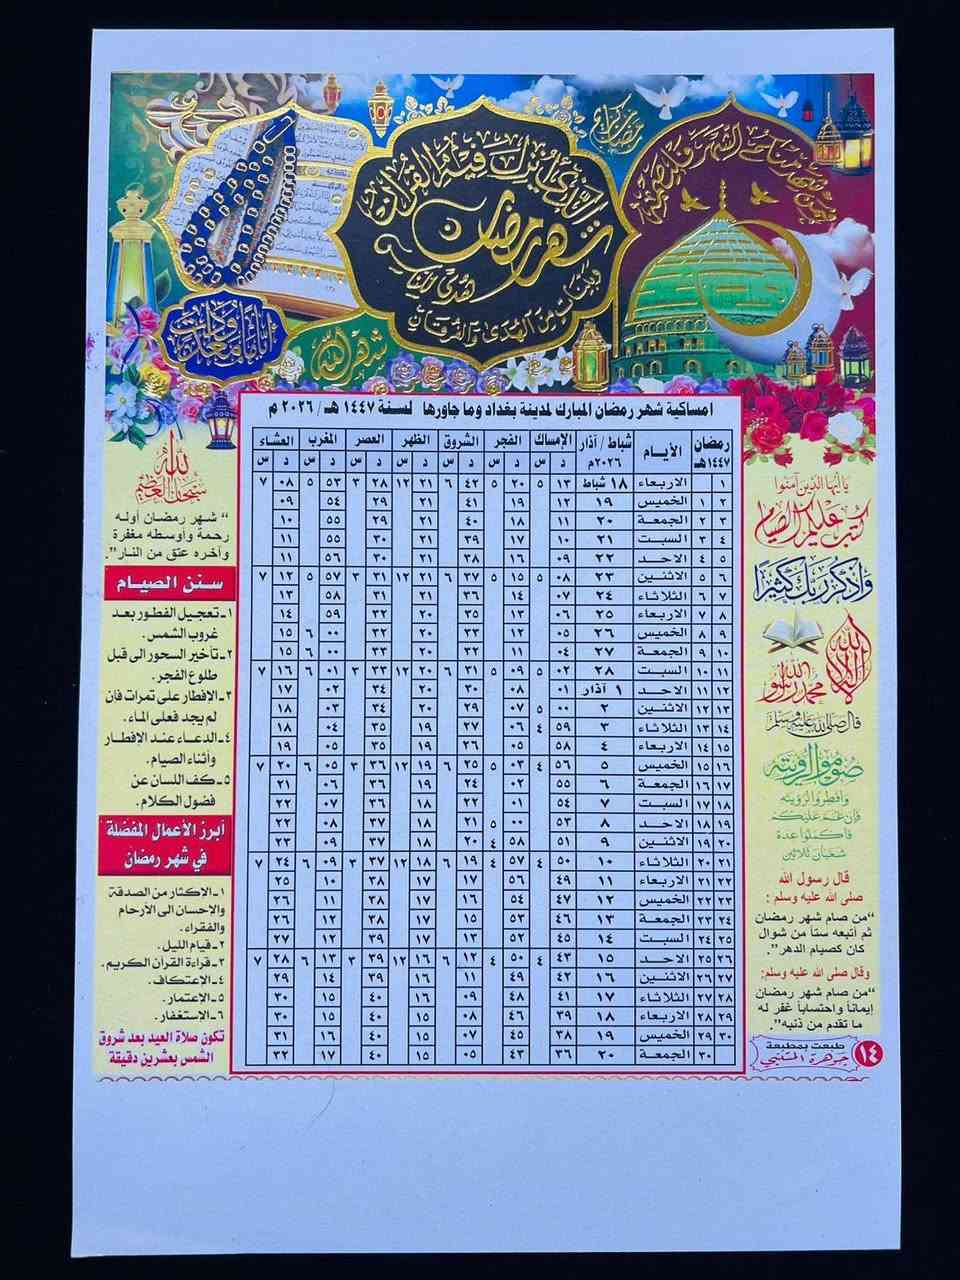 شهر رمضان
الذي أنزل فيه القرآن
هدى للناس
وبينات من الهدى والفرقان
فمن شهد منكم الشهر فليصمه
رمضان كريم
أياما معدودات
شهر الله
امساكية شهر رمضان المبارك لمدينة بغداد وما جاورها لسنة ١٤٤٧ هـ / ٢٠٢٦ م
رمضان ١٤٤٧هـ الأيـام شباط / آذار ٢٠٢٦م الإمساك الفجر الشروق الظهر العصر المغرب العشاء
د س د س د س د س د س د س د س
١ الاربعاء ١٨ شباط ١٣ ٥ ٢٠ ٥ ٤٢ ٦ ٢١ ١٢ ٢٨ ٣ ٥٣ ٥ ٠٨ ٧
١ ٢ الخميس ١٩ ١٢ ١٩ ٤١ ٢١ ٢٩ ٥٤ ٠٩
٢ ٣ الجمعة ٢٠ ١١ ١٨ ٤٠ ٢١ ٢٩ ٥٥ ١٠
٣ ٤ السبت ٢١ ١٠ ١٧ ٣٩ ٢١ ٣٠ ٥٥ ١١
٤ ٥ الاحد ٢٢ ٠٩ ١٦ ٣٨ ٢١ ٣٠ ٥٦ ١١
٥ ٦ الاثنين ٢٣ ٠٨ ٥ ١٥ ٥ ٣٧ ٦ ٢١ ١٢ ٣١ ٣ ٥٧ ٥ ١٢ ٧
٦ ٧ الثلاثاء ٢٤ ٠٧ ١٤ ٣٦ ٢١ ٣١ ٥٨ ١٣
٧ ٨ الاربعاء ٢٥ ٠٦ ١٣ ٣٥ ٢٠ ٣٢ ٥٩ ١٤
٨ ٩ الخميس ٢٦ ٠٥ ١٢ ٣٣ ٢٠ ٣٢ ٠٠ ٦ ١٥
٩ ١٠ الجمعة ٢٧ ٠٤ ١١ ٣٢ ٢٠ ٣٣ ٠٠ ٦ ١٥
١٠ ١١ السبت ٢٨ ٠٢ ٥ ٠٩ ٥ ٣١ ٦ ٢٠ ١٢ ٣٣ ٣ ٠١ ٦ ١٦ ٧
١١ ١٢ الاحد ١ آذار ٠١ ٠٨ ٣٠ ٢٠ ٣٤ ٠٢ ١٧
١٢ ١٣ الاثنين ٢ ٠٠ ٥ ٠٧ ٢٩ ٢٠ ٣٤ ٠٣ ١٨
١٣ ١٤ الثلاثاء ٣ ٥٩ ٤ ٠٦ ٢٧ ١٩ ٣٥ ٠٤ ١٨
١٤ ١٥ الاربعاء ٤ ٥٨ ٠٥ ٢٦ ١٩ ٣٥ ٠٥ ١٩
١٥ ١٦ الخميس ٥ ٥٦ ٤ ٠٣ ٥ ٢٥ ٦ ١٩ ١٢ ٣٦ ٣ ٠٥ ٦ ٢٠ ٧
١٦ ١٧ الجمعة ٦ ٥٥ ٠٢ ٢٤ ١٩ ٣٦ ٠٦ ٢١
١٧ ١٨ السبت ٧ ٥٤ ٠١ ٢٢ ١٨ ٣٦ ٠٧ ٢٢
١٨ ١٩ الاحد ٨ ٥٣ ٠٠ ٥ ٢١ ١٨ ٣٧ ٠٨ ٢٢
١٩ ٢٠ الاثنين ٩ ٥١ ٥٨ ٤ ٢٠ ١٨ ٣٧ ٠٩ ٢٣
٢٠ ٢١ الثلاثاء ١٠ ٥٠ ٤ ٥٧ ٤ ١٩ ٦ ١٨ ١٢ ٣٧ ٣ ٠٩ ٦ ٢٤ ٧
٢١ ٢٢ الاربعاء ١١ ٤٩ ٥٦ ١٧ ١٧ ٣٨ ١٠ ٢٥
٢٢ ٢٣ الخميس ١٢ ٤٧ ٥٤ ١٦ ١٧ ٣٨ ١١ ٢٦
٢٣ ٢٤ الجمعة ١٣ ٤٦ ٥٣ ١٥ ١٧ ٣٨ ١٢ ٢٦
٢٤ ٢٥ السبت ١٤ ٤٥ ٥٢ ١٣ ١٧ ٣٩ ١٢ ٢٧
٢٥ ٢٦ الاحد ١٥ ٤٣ ٤ ٥٠ ٤ ١٢ ٦ ١٦ ١٢ ٣٩ ٣ ١٣ ٦ ٢٨ ٧
٢٦ ٢٧ الاثنين ١٦ ٤٢ ٤٩ ١١ ١٦ ٣٩ ١٤ ٢٩
٢٧ ٢٨ الثلاثاء ١٧ ٤١ ٤٨ ٠٩ ١٦ ٤٠ ١٥ ٣٠
٢٨ ٢٩ الاربعاء ١٨ ٣٩ ٤٦ ٠٨ ١٥ ٤٠ ١٥ ٣٠
٢٩ ٣٠ الخميس ١٩ ٣٨ ٤٥ ٠٧ ١٥ ٤٠ ١٦ ٣١
٣٠ الجمعة ٢٠ ٣٦ ٤٣ ٠٥ ١٥ ٤٠ ١٧ ٣٢
يا أيها الذين آمنوا
كتب عليكم الصيام
واذكر ربك كثيرا
لا إله إلا الله
محمد رسول الله
قال صلى الله عليه وسلم
صوموا لرؤيته
وافطروا لرؤيته
فإن غم عليكم
فاكملوا عدة
شعبان ثلاثين
قال رسول الله
صلى الله عليه وسلم :
"من صام شهر رمضان
ثم أتبعه ستاً من شوال
كان كصيام الدهر"
وقال صلى الله عليه وسلم:
"من صام شهر رمضان
إيماناً واحتساباً غفر له
ما تقدم من ذنبه".
طبعت بمطبعة
جوهرة المتنبي
١٤
سبحان الله العظيم
" شهر رمضان أوله
رحمة وأوسطه مغفرة
وآخره عتق من النار".
سنن الصيام
١ـ تعجيل الفطور بعد
غروب الشمس.
٢ـ تأخير السحور الى قبل
طلوع الفجر.
٣ـ الإفطار على تمرات فان
لم يجد فعلى الماء.
٤ـ الدعاء عند الإفطار
وأثناء الصيام.
٥ـ كف اللسان عن
فضول الكلام.
أبرز الأعمال المفضلة
في شهر رمضان
١ـ الإكثار من الصدقة
والإحسان الى الأرحام
والفقراء.
٢ـ قيام الليل.
٣ـ قراءة القرآن الكريم.
٤ـ الإعتكاف.
٥ـ الإعتمار.
٦ـ الإستغفار.
تكون صلاة العيد بعد شروق
الشمس بعشرين دقيقة